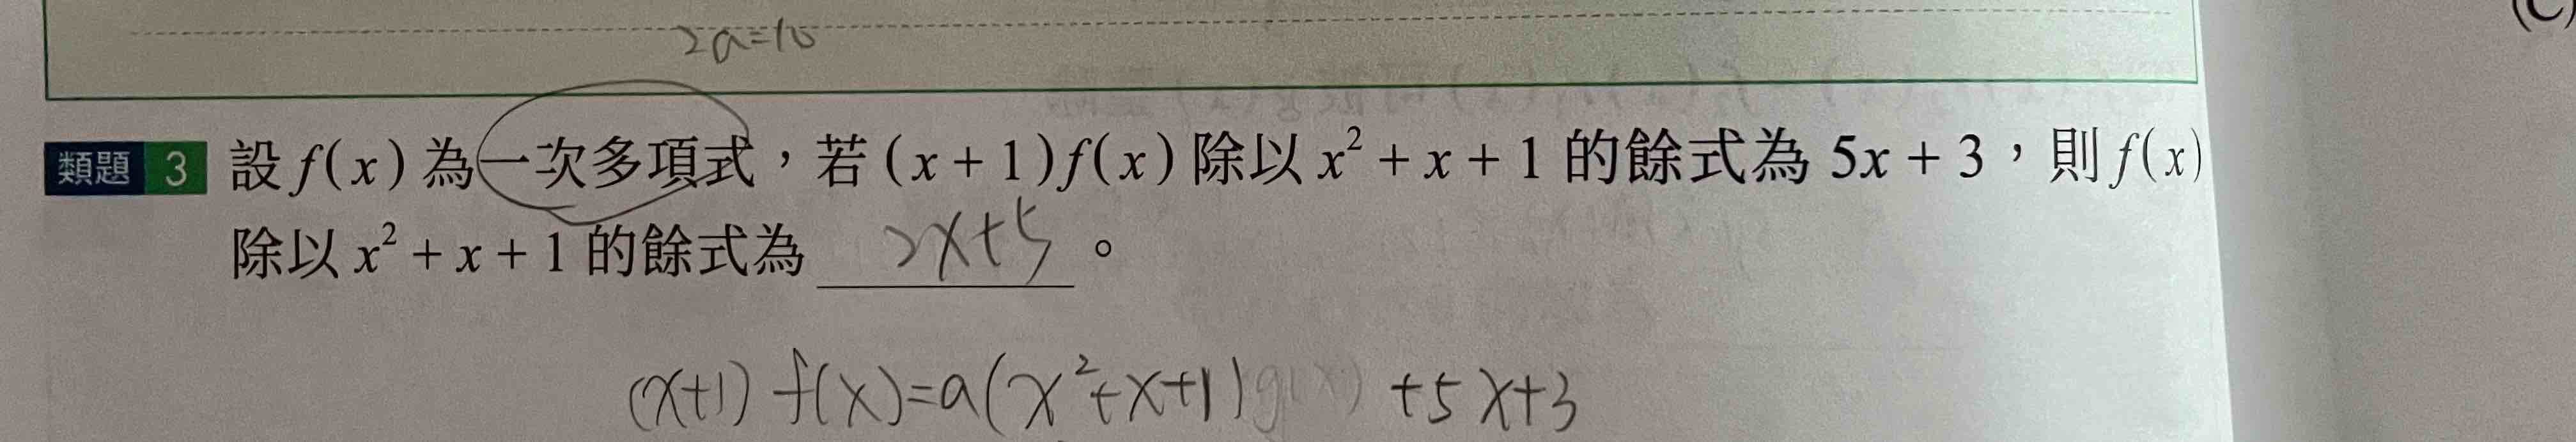 (C)
2a=10
類題 3 設 f(x) 為一次多項式，若 (x + 1)f(x) 除以 x² + x + 1 的餘式為 5x + 3，則 f(x)
除以 x² + x + 1 的餘式為 2x+5 。
(x+1) f(x)=a(x²+x+1)g(x) +5x+3